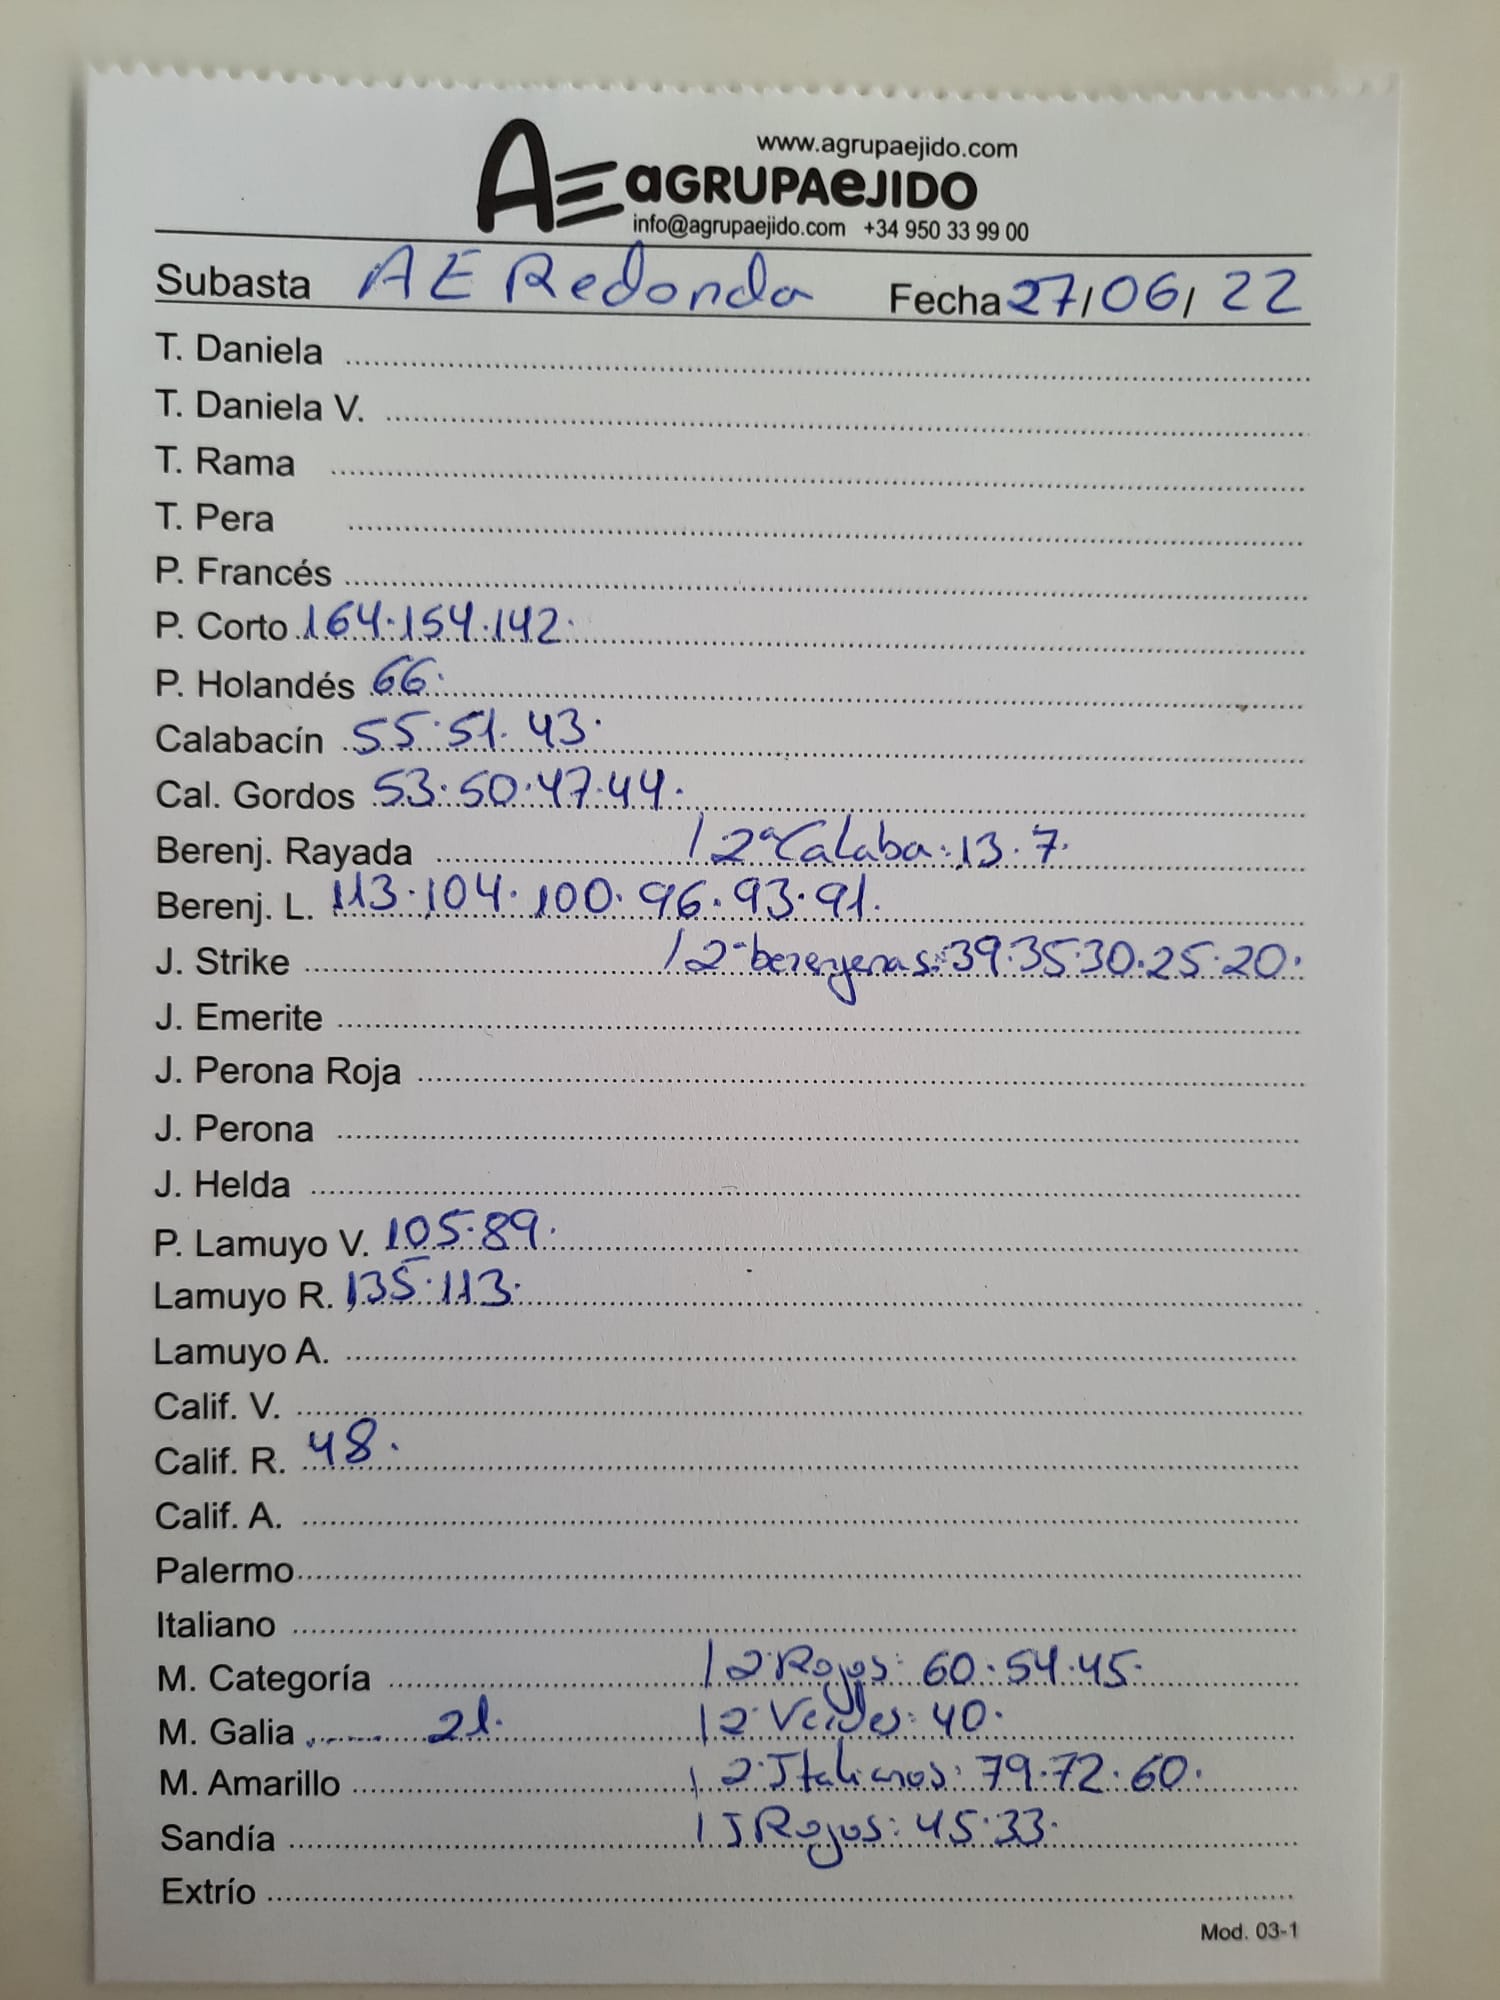 www.agrupaejido.com
AE aGRUPAeJIDO
info@agrupaejido.com +34 950 33 99 00
Subasta AE Redonda Fecha 27/06/22
T. Daniela
T. Daniela V.
T. Rama
T. Pera
P. Francés
P. Corto 164.154.142.
P. Holandés 66.
Calabacín 55.51.43.
Cal. Gordos 53.50.47.44.
Berenj. Rayada / 2ª Calaba: 13.7.
Berenj. L. 113.104.100.96.93.91.
J. Strike / 2ª berenjenas: 39.35.30.25.20.
J. Emerite
J. Perona Roja
J. Perona
J. Helda
P. Lamuyo V. 105.89.
Lamuyo R. 135.113.
Lamuyo A.
Calif. V.
Calif. R. 48.
Calif. A.
Palermo
Italiano
M. Categoría / 2ª Rojos: 60.54.45.
M. Galia 21. / 2ª Verdes: 40.
M. Amarillo / 2ª Italianos: 79.72.60.
Sandía / J Rojos: 45.33.
Extrío
Mod. 03-1